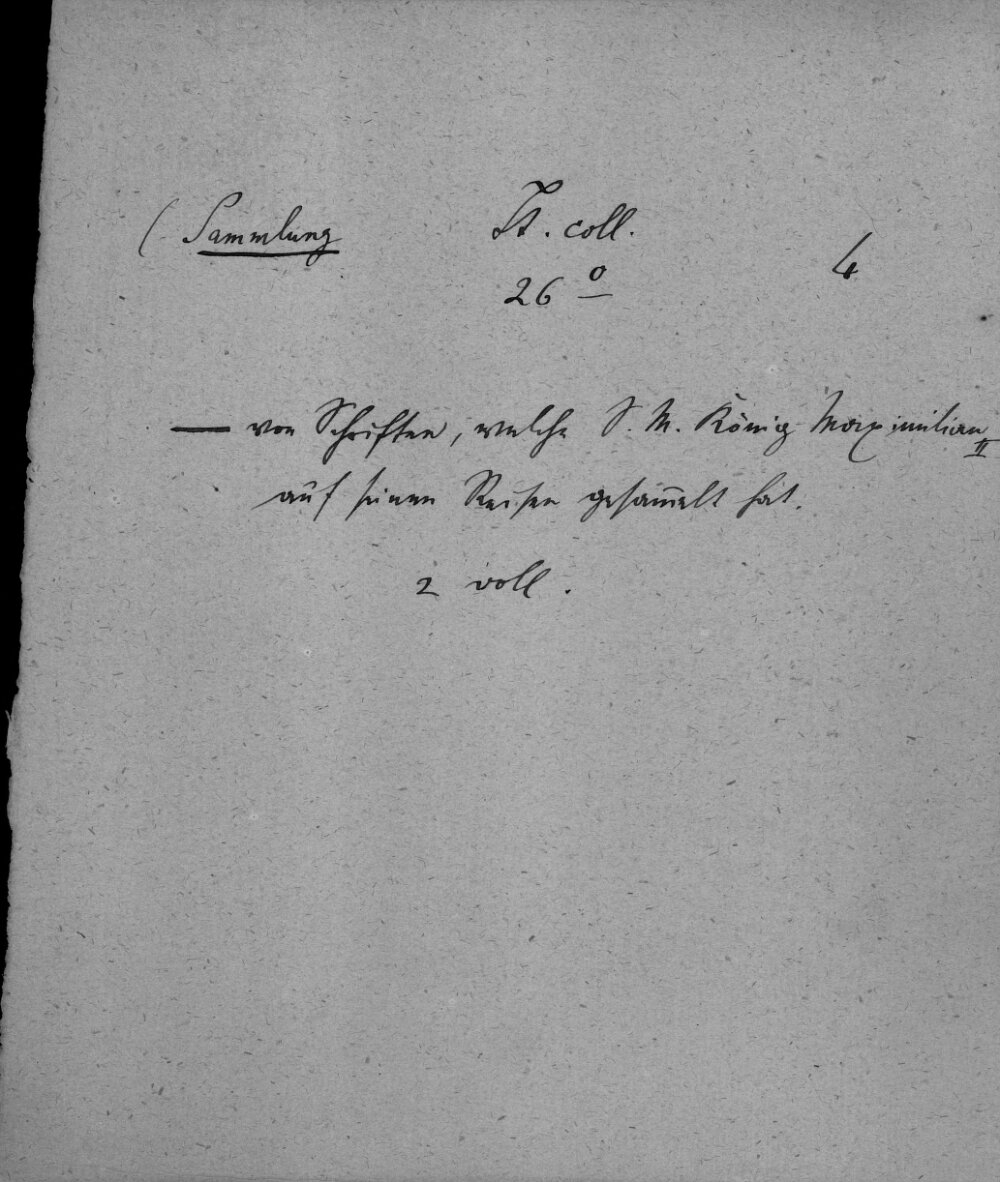 ( Sammlung
It. coll. 4
26 o
— von Schriften, welche S. M. König Maximilian II
auf seinen Reisen gesam̅elt hat.
2 voll.